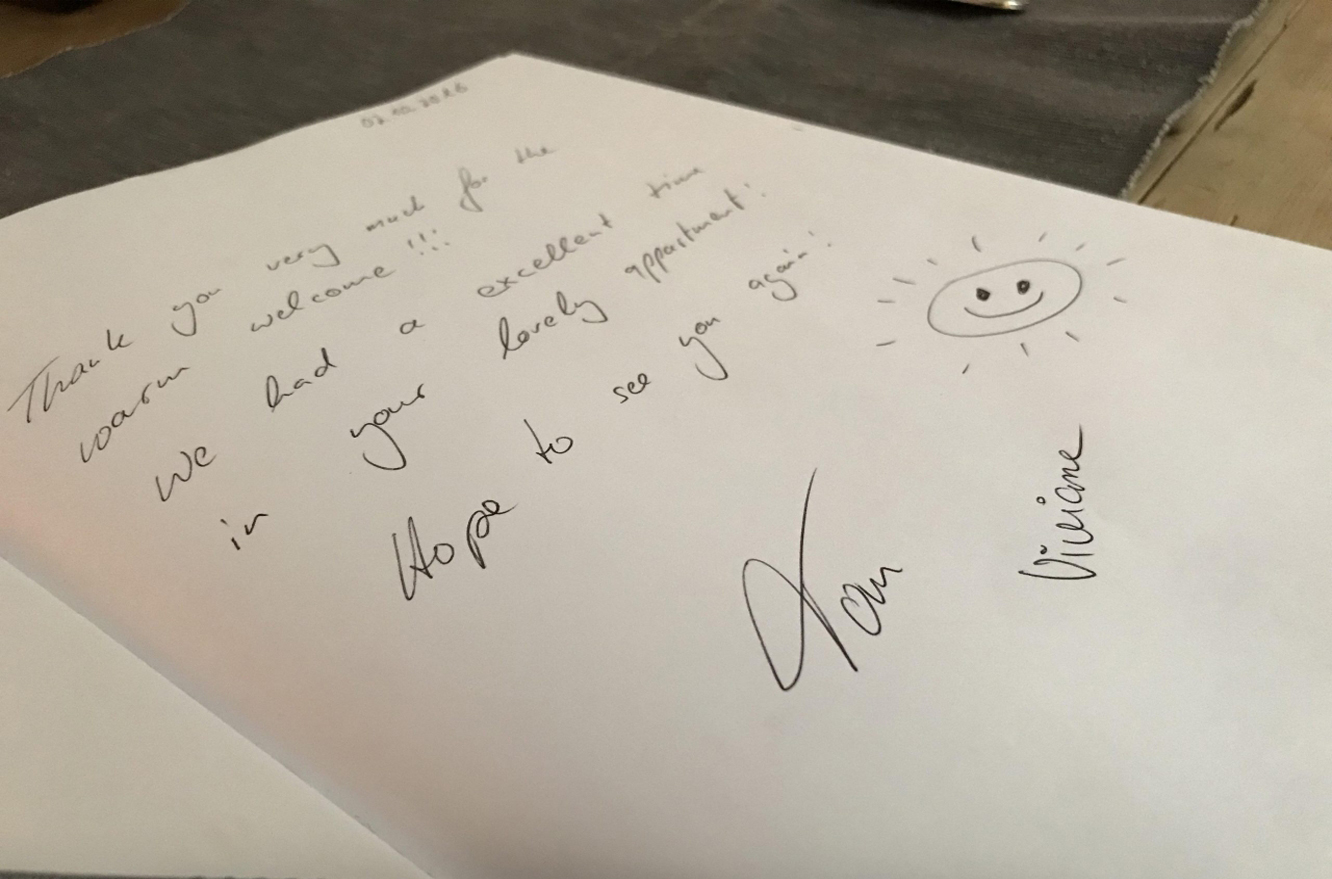 Thank you very much for the
warm welcome !!!
We had a excellent time
in your lovely appartment!
Hope to see you again!
Viviane